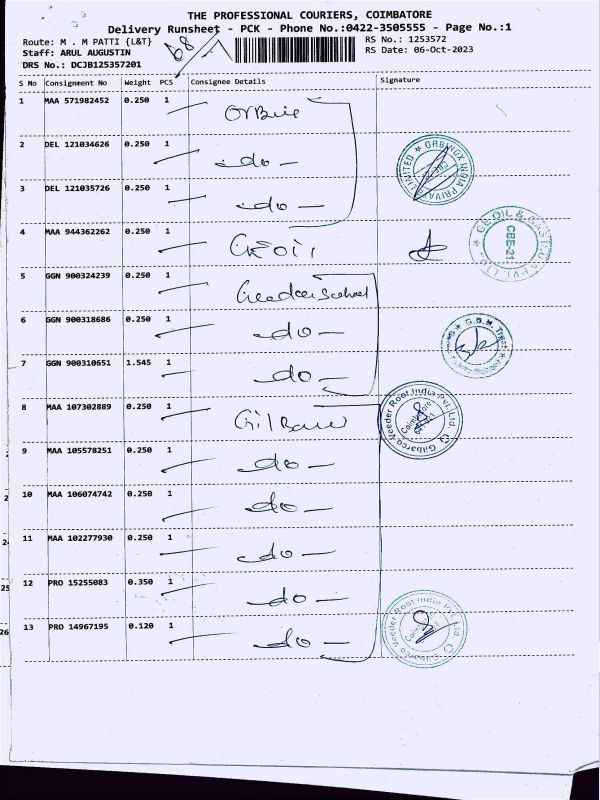 THE PROFESSIONAL COURIERS, COIMBATORE
Delivery Runsheet - PCK - Phone No.:0422-3505555 - Page No.:1
Route: M . M PATTI {L&T}
RS No.: 1253572
Staff: ARUL AUGUSTIN
RS Date: 06-Oct-2023
DRS No.: DCJB125357201
68
S No Consignment No Weight PCS Consignee Details Signature
1 MAA 571982452 0.250 1
2 DEL 121034626 0.250 1 -do-
ORBINOX INDIA PRIVATE LIMITED
3 DEL 121035726 0.250 1 -do-
4 MAA 944362262 0.250 1 GE OIL
GE OIL & GAS INDIA PVT. LTD.
CBE-21
5 GGN 900324239 0.250 1
6 GGN 900318686 0.250 1 -do-
7 GGN 900310651 1.545 1 -do-
8 MAA 107302889 0.250 1
Gilbarco Veeder Root India Pvt. Ltd.
Coimbatore
9 MAA 105578251 0.250 1 -do-
10 MAA 106074742 0.250 1 -do-
11 MAA 102277930 0.250 1 -do-
12 PRO 15255083 0.350 1 -do-
13 PRO 14967195 0.120 1 -do-
Gilbarco Veeder Root India Pvt. Ltd.
2
24
25
26